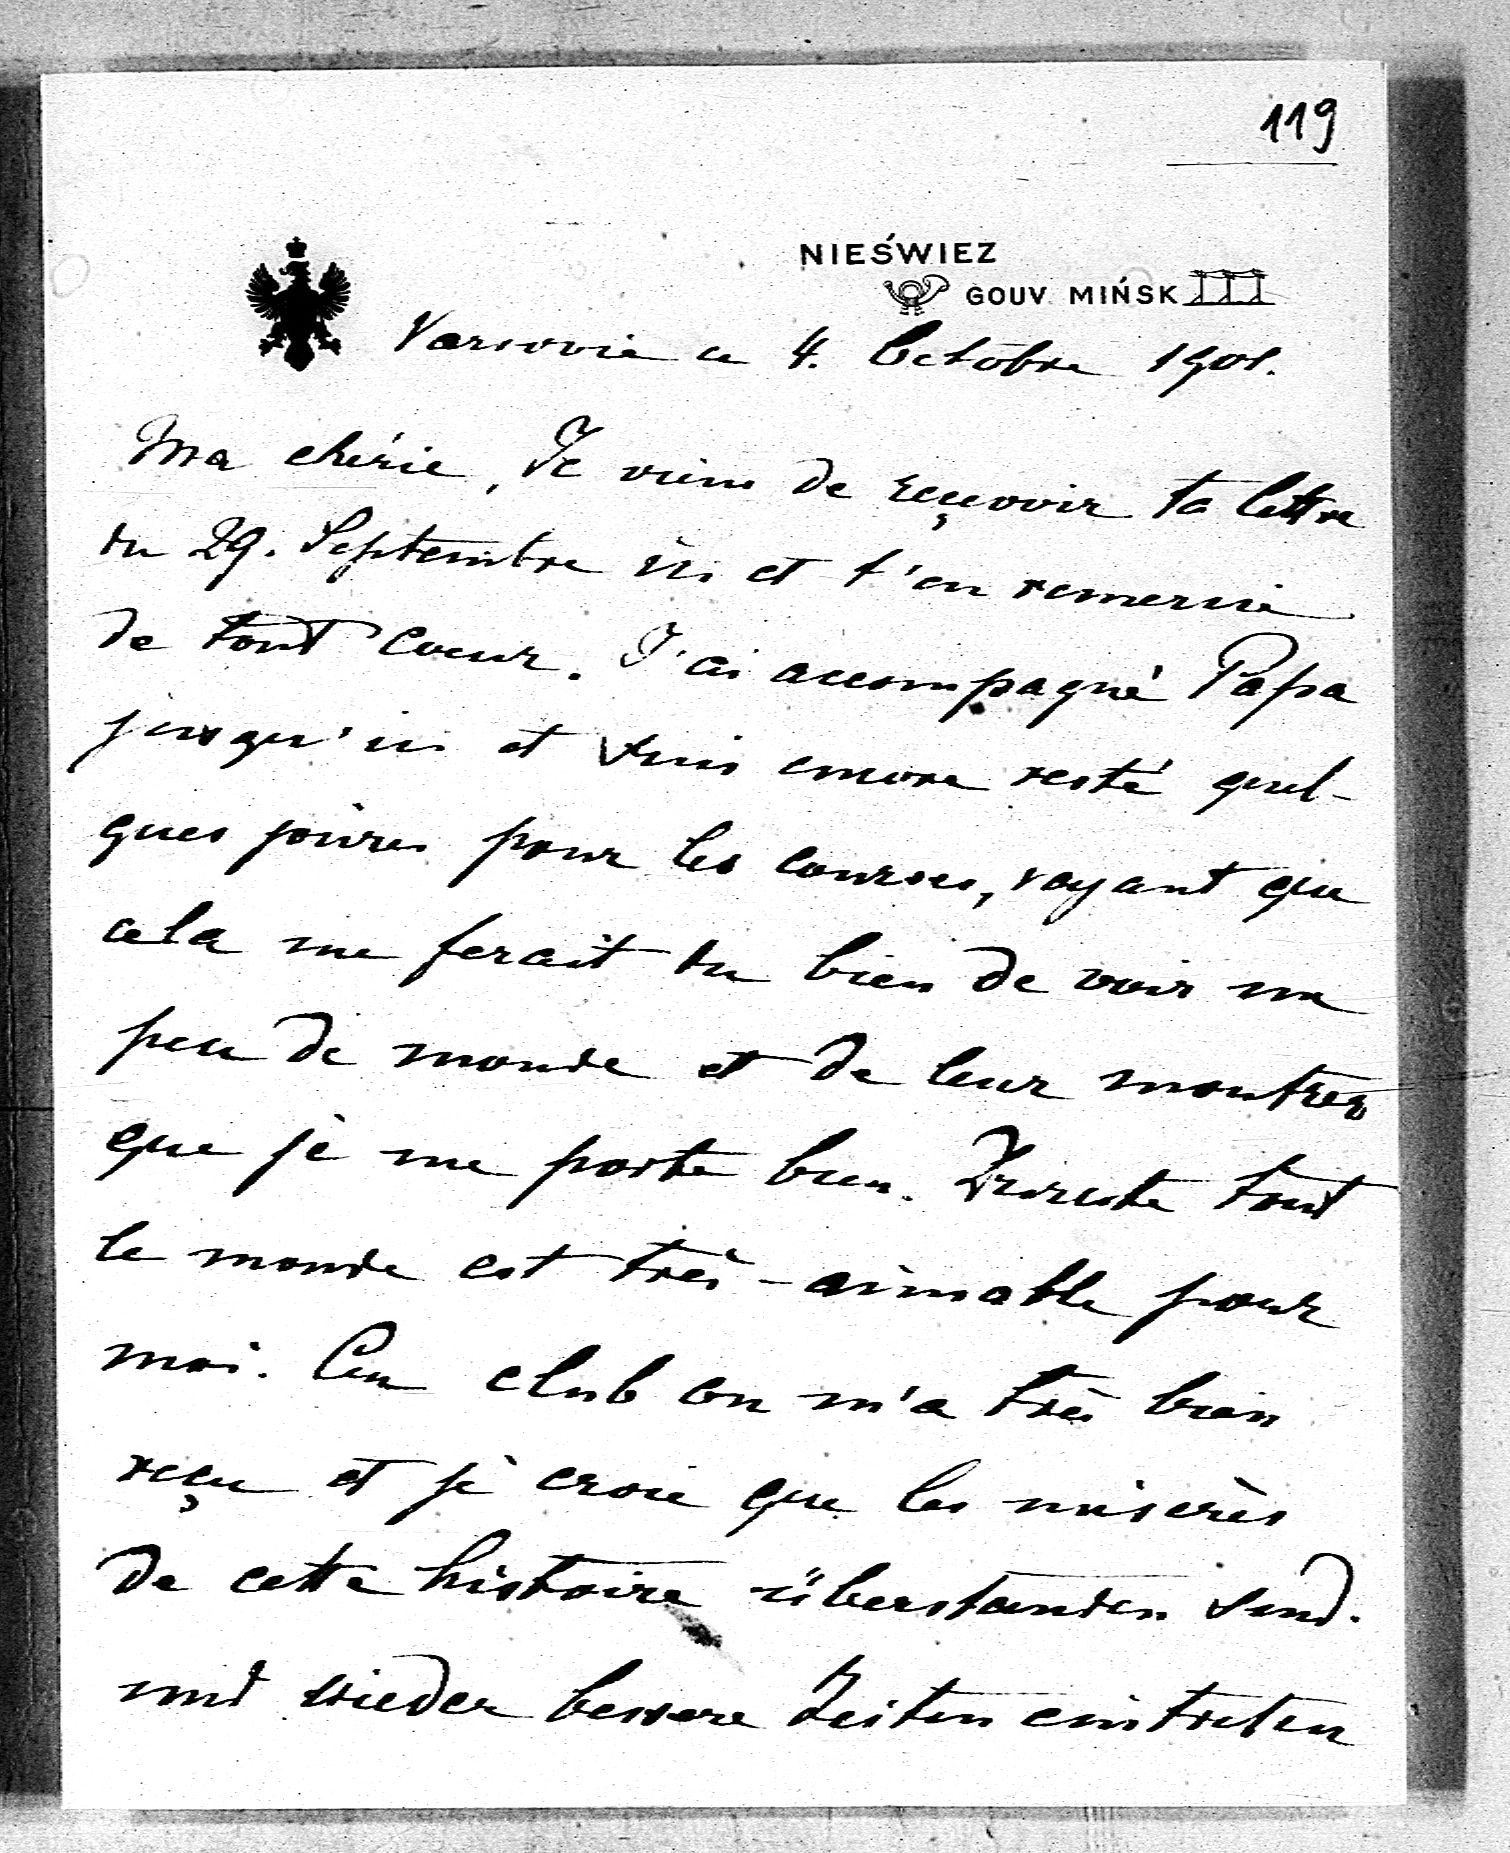 119
NIEŚWIEZ
GOUV. MIŃSK
Varsovie ce 4. Octobre 1901.
Ma chérie, Je viens de reçevoir ta lettre
du 29. Septembre ici et t'en remercie
de tout coeur. J'ai accompagné Papa
jusqu'ici et suis encore resté quel-
ques joures pour les courses, voyant que
cela me ferait du bien de voir un
peu de monde et de leur montrer
que je me porte bien. Dureste tout
le monde est très-aimable pour
moi. Au club on m'a très bien
reçu et je croie que les miserès
de cette histoire überstanden sind.
und wieder bessere Zeiten eintreten